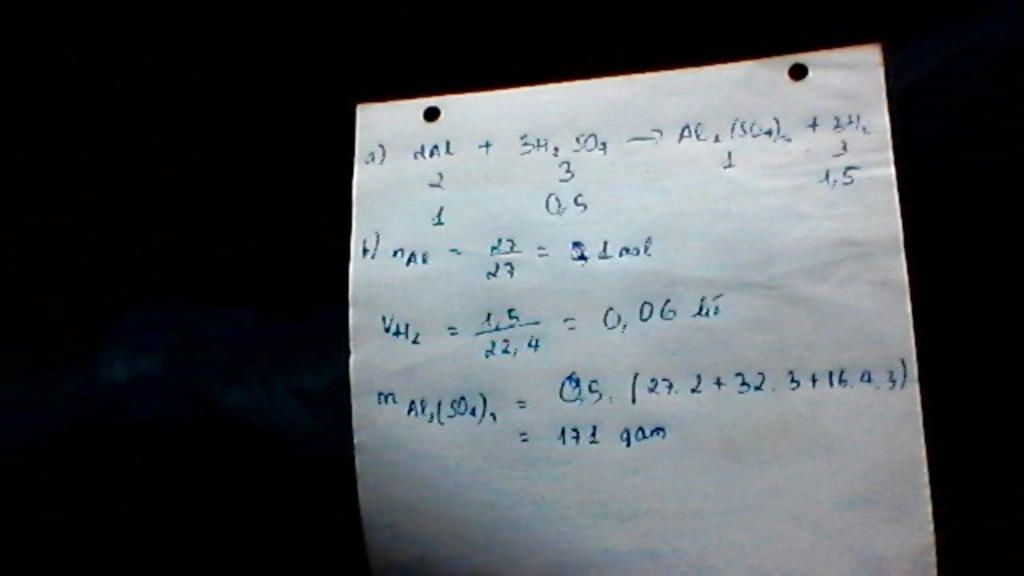 a) 2Al + 3H₂SO₄ → Al₂(SO₄)₃ + 3H₂
2 3 1 3
1 0,5 1,5
b) nAl = 27/27 = 1 mol
VH₂ = 1,5/22,4 = 0,06 lít
m Al₂(SO₄)₃ = 0,5. (27.2 + 32.3 + 16.4.3)
= 171 gam